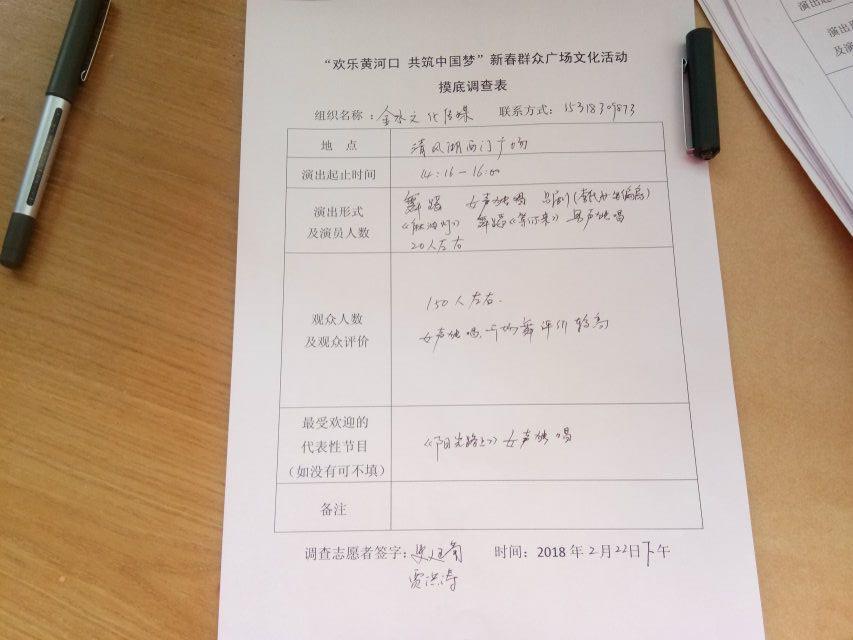 “欢乐黄河口 共筑中国梦”新春群众广场文化活动
摸底调查表
组织名称：金水文化传媒 联系方式：15318309873
地 点 清风湖西门广场
演出起止时间 14:16—16:00
演出形式
及演员人数
舞蹈 女声独唱 吕剧
舞蹈《等你来》 男声独唱
20人左右
观众人数
及观众评价
150人左右.
女声独唱、广场舞评价较高
最受欢迎的
代表性节目
（如没有可不填）
《阳光路上》女声独唱
备注
调查志愿者签字： 时间：2018年2月22日下午
贾洪涛
演出
演出形
及演